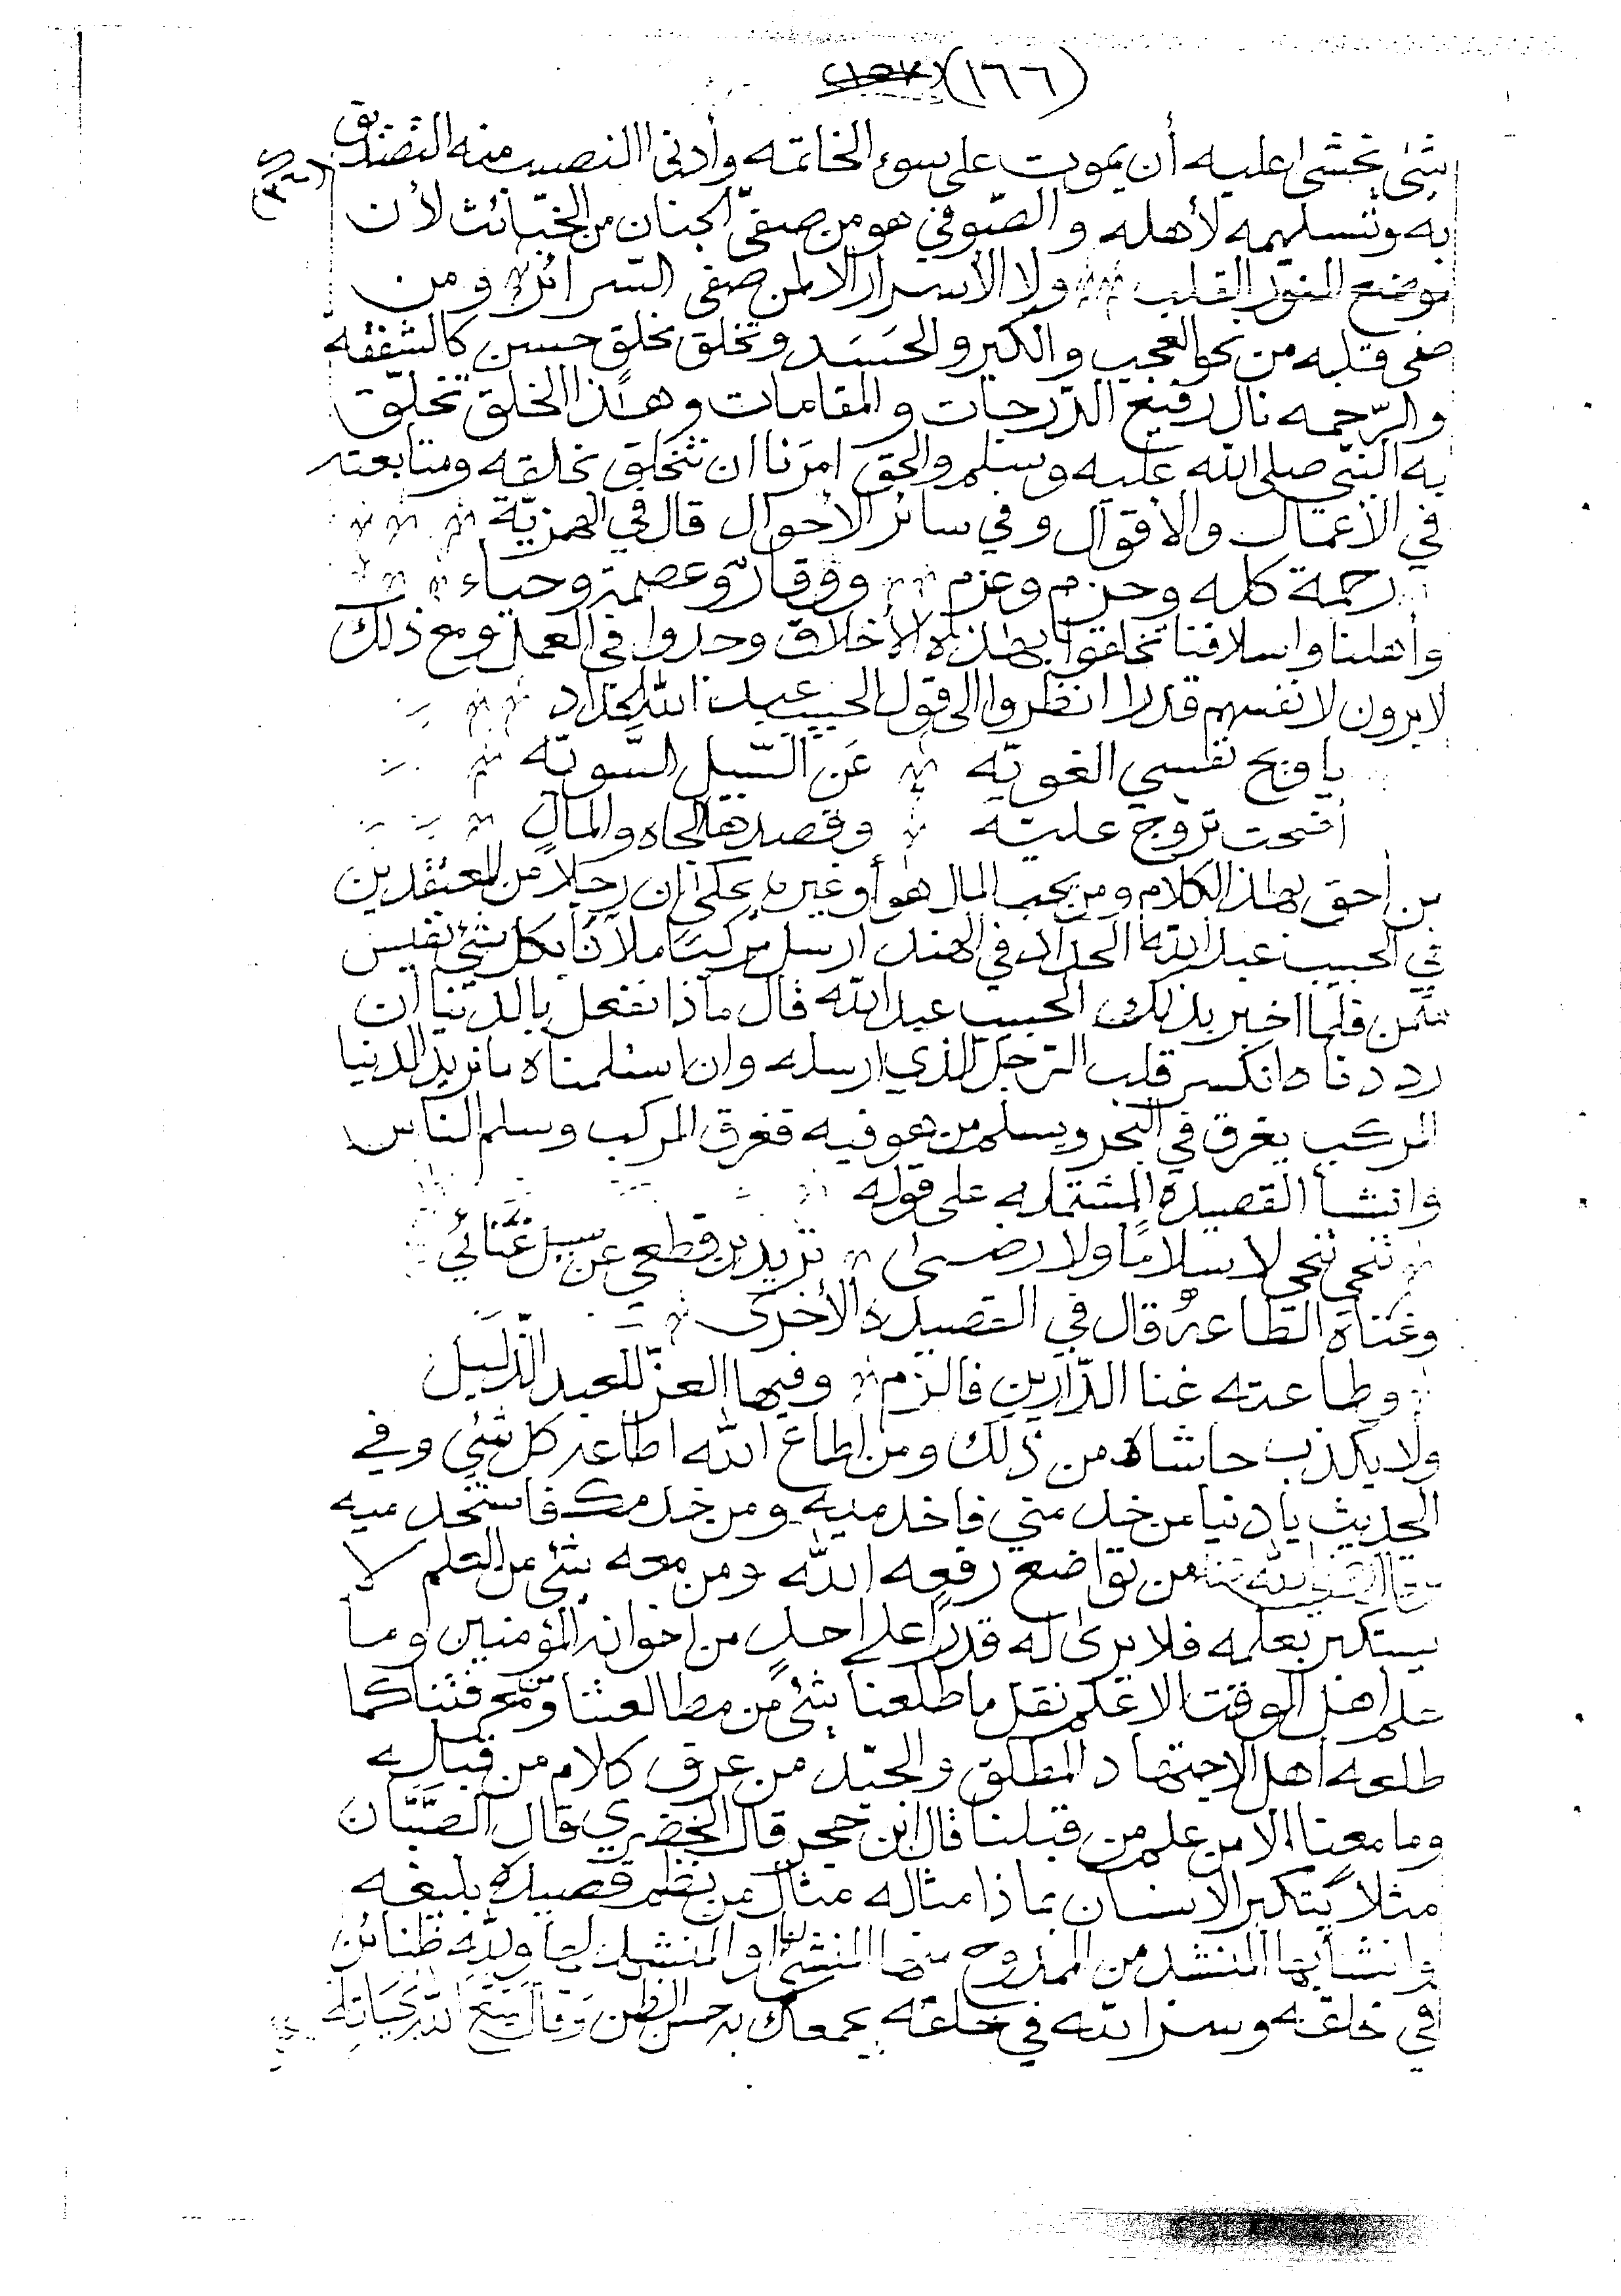 (١٦٦)
شئ يخشى عليه أن يموت على سوء الخاتمه وأدنى النصيب منه التصديق
به وتسليمه لأهله والصّوفي هو من صفّى الجنان من الخبائث لأن
موضع النور القلب ولا الأسرار الا لمن صفى السرائر ومن
صفى قلبه من نحو العجب والكبر والحَسَد وتخلق بخلق حسن كالشفقه
والرّحمه نال رفيع الدّرجات والمقامات وهذا الخلق تخلّق
به النبي صلى الله عليه وسلم والحق امرَنا ان نتخلق بخلقه ومتابعته
في الأعمال والأقوال وفي سائر الأحوال قال في الهمزيّة
رحمة كله وحزم وعزم ووقارٌ وعصمة وحياء
وأهلنا واسلافنا تخلقوا بهذه الأخلاق وجدوا في العمل ومع ذلك
لا يرون لانفسهم قدرا انظروا الى قول الحبيب عبد الله الحداد
يا ويح نفسي الغويّه عَن السّبيل السَّويّه
أضحت تروّج عليّه وقصدها الجاه والمال
من احق بهذا الكلام ومن يحب المال هو أو غيره يحكى ان رجلاً من المعتقدين
في الحبيب عبد الله الحداد في الهند ارسل مركبًا ملآنًا بكل شئ نفيس
فلما اخبر بذلك الحبيب عبد الله قال ماذا نفعل بالدنيا ان
رددناه انكسر قلب الرّجل الذي ارسله وان استلمناه ما نريد الدنيا
المركب يغرق في البحر ويسلم من هو فيه فغرق المركب وسلم الناس
وانشأ القصيدة المشتمله على قوله
تنحي تنحي لا سلامًا ولا رضى تريدين قطعي عن سبيل غنائي
وغناه الطاعة وقال في القصيدة الأخرى
وطاعته غنا الدّارين فالزم وفيها العزّ للعبد الذّليل
ولا يكذب حاشاه من ذلك ومن اطاع الله اطاعه كل شئي وفي
الحديث يا دنيا من خدمني فاخدميه ومن خدمك فاستخدميه
من تواضع رفعه الله ومن معه شئ من العلم لا
يستكبر بعلمه فلا يرى له قدرًا على احد من اخوانه المؤمنين وما
علم اهل الوقت الا علم نقل ما طلعنا بشئ من مطالعتنا ومعرفتنا كما
طلعه اهل الاجتهاد المطلق والجيّد من عرف كلام من قبله
وما معنا الا من علم من قبلنا قال ابن حجر قال الخضري قال الصّبّان
مثلاً يتكبر الانسان بماذا مثاله مثال من نظم قصيدة بليغه
وانشأ بها المنشد من الممدوح منها المنشئ او المنشد لها ولله ظنائن
في خلقه وسر الله في خلقه يجمعك به حسن الظن وقال متع الله بحياته